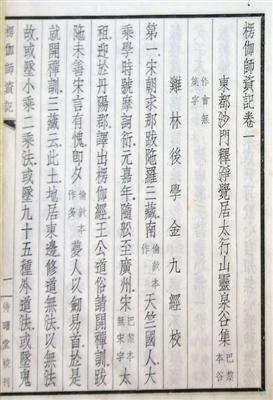 楞伽師資記卷一
東都沙門釋淨覺居太行山靈泉谷集巴黎本谷
作會無集字
雞林後學金九經校
第一宋朝求那跋陀羅三藏南天竺國人大
乘學時號摩訶衍元嘉年隨船至廣州宋太
祖迎於丹陽郡譯出楞伽經王公道俗請開禪訓跋
陀未善宋言有愧即夕夢人以劍易首於是
就開禪訓三藏云此土地居東邊修道無法以無
故或墜小乘二乘法或墜九十五種外道法或墜鬼
楞伽師資記
一
待曙堂校刊